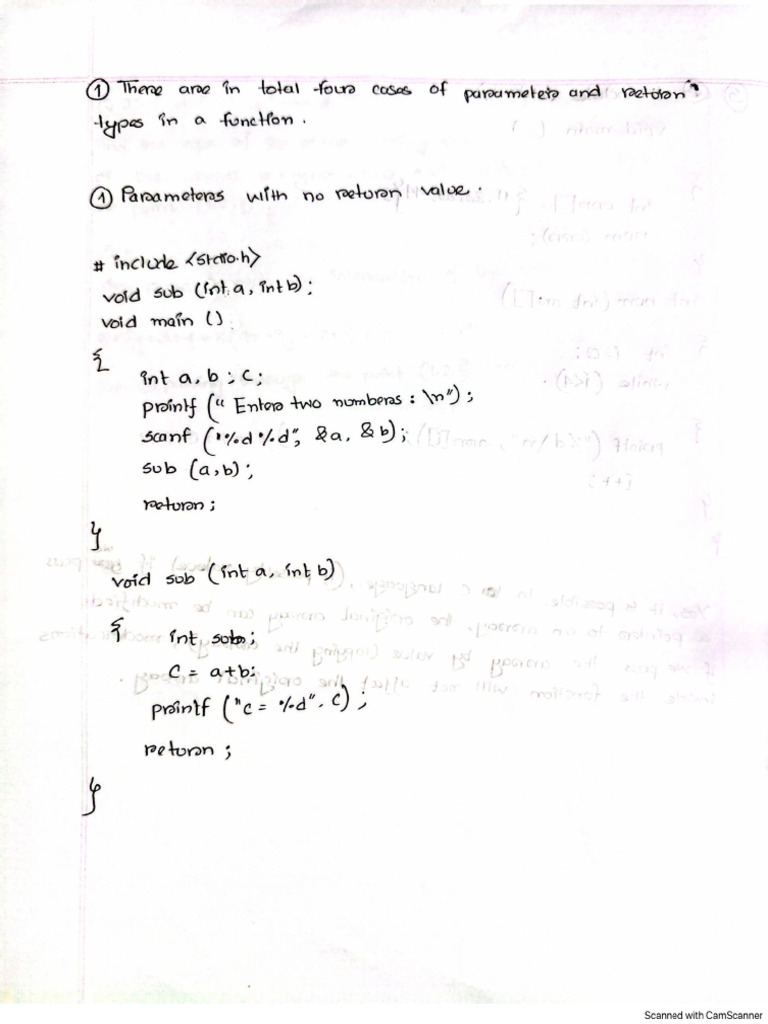 ① There are in total four cases of parameters and return
types in a function.
① Parameters with no return value.
# include <stdio.h>
void sub (int a, int b);
void main ()
{
int a, b ; c;
printf (" Enter two numbers : \n");
scanf ("%d %d", &a, &b);
sub (a,b);
return;
}
void sub (int a, int b)
{
int sub;
C = a+b;
printf ("c = %d". c) ;
return ;
}
Scanned with CamScanner